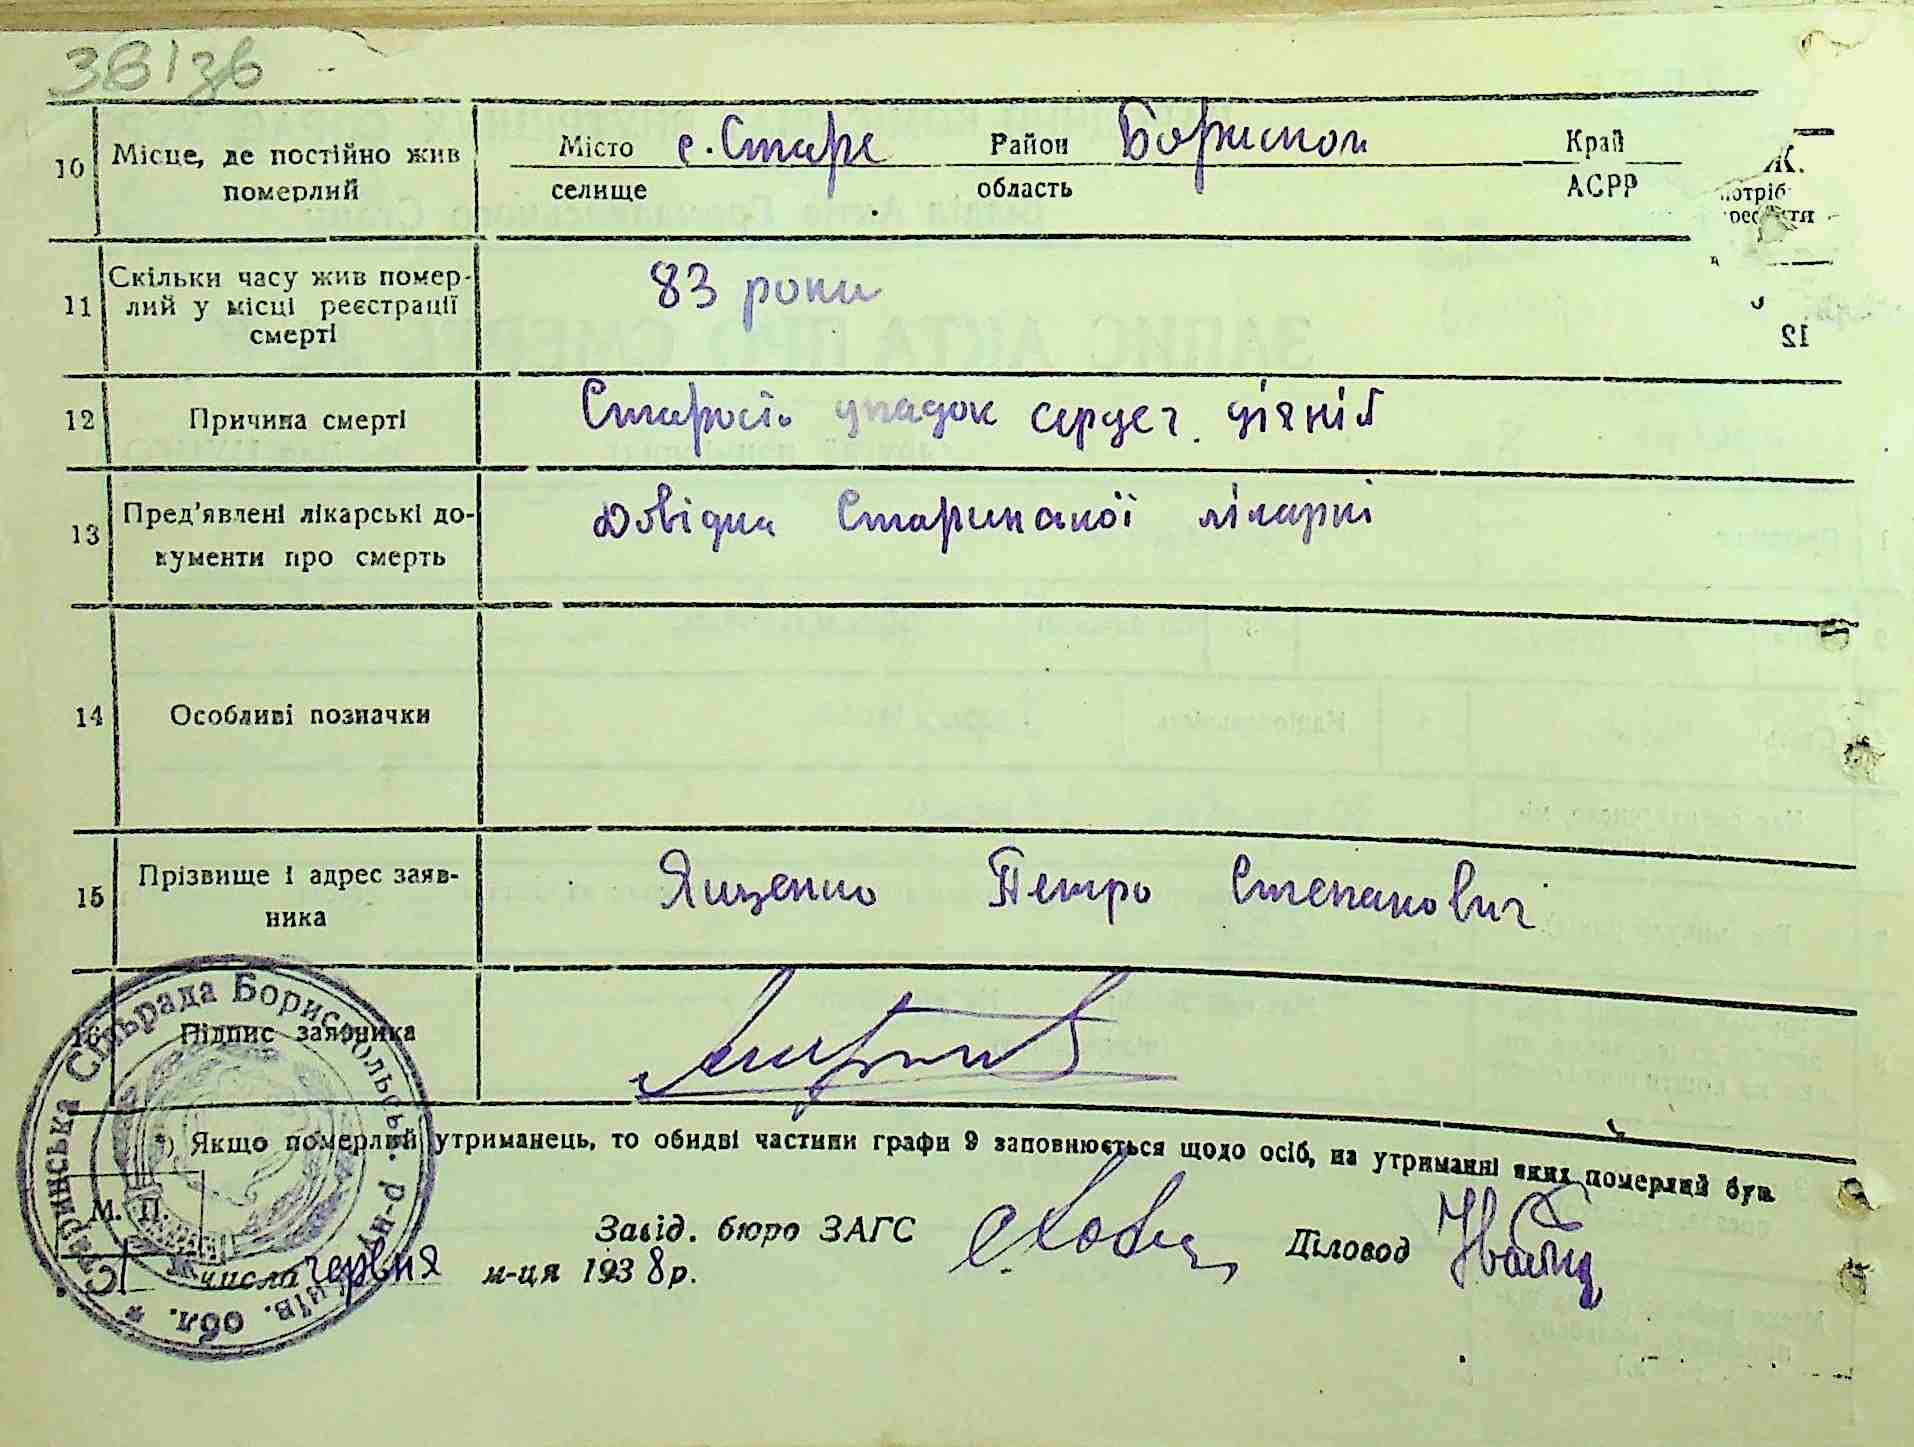 38136
10 Місце, де постійно жив Місто с. Старе Район Бориспол Край
померлий селище область АСРР
Ж.
потріб
11 Скільки часу жив помер-
лий у місці реєстрації 83 роки
смерті
12
12 Причина смерті Старость упадок сердеч. діяній
13 Пред'явлені лікарські до- Довідка Старинської лікарні
кументи про смерть
14 Особливі позначки
15 Прізвище і адрес заяв- Ященко Петро Степанович
ника
16 Підпис заявника
*) Якщо померлий утриманець, то обидві частини графи 9 заповнюється щодо осіб, на утриманні яких померлий був
М. П.
Завід. бюро ЗАГС Діловод
числа червня м-ця 1938 р.
Старинська Сільрада Бориспольськ. р-ну Київ. обл. *